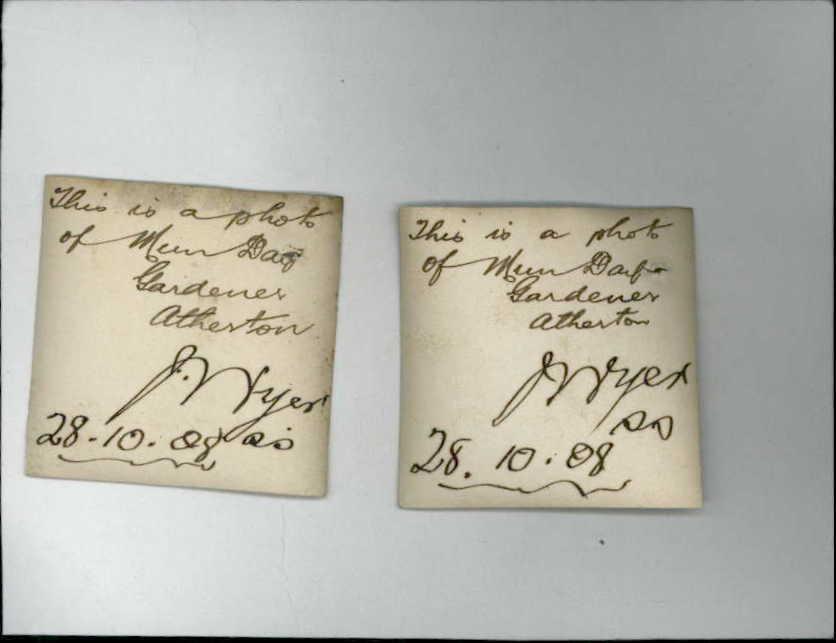 This is a photo
of Mun Day
Gardener
Atherton
28.10.08
This is a photo
of Mun Day
Gardener
Atherton
28.10.08